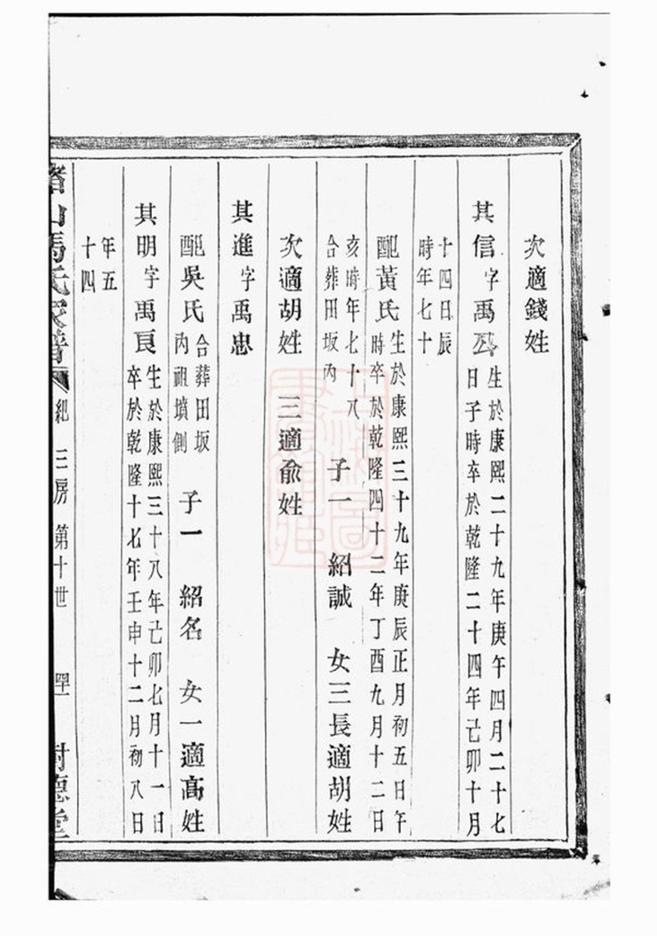 次適錢姓
其信字禹
生於康熙二十九年庚午四月二十七
日子時卒於乾隆二十四年己卯十月
十四日辰
時年七十
配黃氏
生於康熙三十九年庚辰正月初五日午
時卒於乾隆四十二年丁酉九月十二日
亥時年七十八
合葬田坂內
子一 紹誠 女三長適胡姓
次適胡姓 三適兪姓
其進字禹忠
配吳氏
合葬田坂
內祖墳側
子一 紹名 女一適髙姓
其明字禹良
生於康熙三十八年己卯七月十一日
卒於乾隆十七年壬申十二月初八日
年五
十四
山馬氏宗譜 紀 三房第十世 德堂